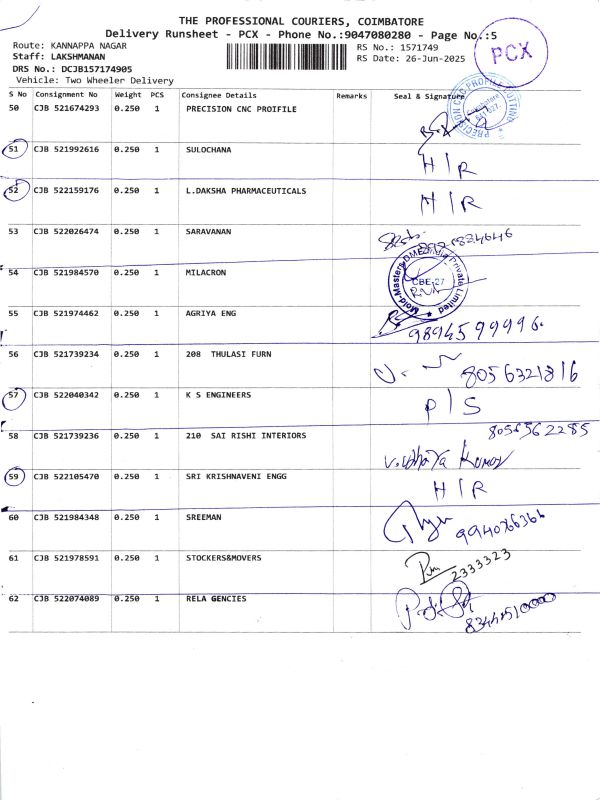 THE PROFESSIONAL COURIERS, COIMBATORE
Delivery Runsheet - PCX - Phone No.:9047080280 - Page No.:5
PCX
Route: KANNAPPA NAGAR
RS No.: 1571749
Staff: LAKSHMANAN
RS Date: 26-Jun-2025
DRS No.: DCJB157174905
Vehicle: Two Wheeler Delivery
S No Consignment No Weight PCS Consignee Details Remarks Seal & Signature
50 CJB 521674293 0.250 1 PRECISION CNC PROIFILE
51 CJB 521992616 0.250 1 SULOCHANA H/R
52 CJB 522159176 0.250 1 L.DAKSHA PHARMACEUTICALS H/R
53 CJB 522026474 0.250 1 SARAVANAN
54 CJB 521984570 0.250 1 MILACRON
Mold-Masters DME India Private Limited
CBE-27
55 CJB 521974462 0.250 1 AGRIYA ENG 9894599996
56 CJB 521739234 0.250 1 208 THULASI FURN 8056321816
57 CJB 522040342 0.250 1 K S ENGINEERS P/S
58 CJB 521739236 0.250 1 210 SAI RISHI INTERIORS 8056562285
V.udhaya Kumar
59 CJB 522105470 0.250 1 SRI KRISHNAVENI ENGG H/R
60 CJB 521984348 0.250 1 SREEMAN 9940766366
61 CJB 521978591 0.250 1 STOCKERS&MOVERS 2333323
62 CJB 522074089 0.250 1 RELA GENCIES